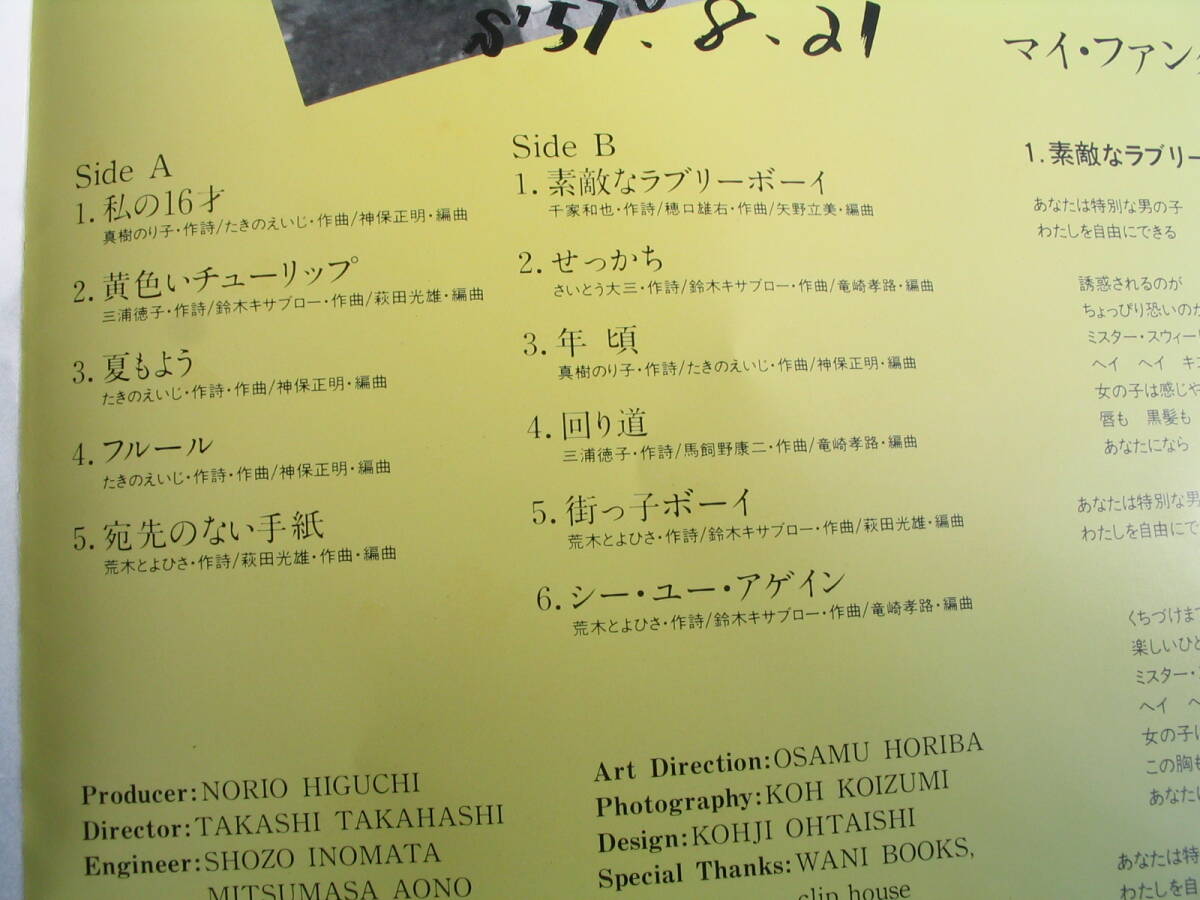 S'57.8.21
マイ・ファン
Side A
1.私の16才
真樹のり子・作詩/たきのえいじ・作曲/神保正明・編曲
2.黄色いチューリップ
三浦徳子・作詩/鈴木キサブロー・作曲/萩田光雄・編曲
3.夏もよう
たきのえいじ・作詩・作曲/神保正明・編曲
4.フルール
たきのえいじ・作詩・作曲/神保正明・編曲
5.宛先のない手紙
荒木とよひさ・作詩/萩田光雄・作曲・編曲
Side B
1.素敵なラブリーボーイ
千家和也・作詩/穂口雄右・作曲/矢野立美・編曲
2.せっかち
さいとう大三・作詩/鈴木キサブロー・作曲/竜崎孝路・編曲
3.年 頃
真樹のり子・作詩/たきのえいじ・作曲/神保正明・編曲
4.回り道
三浦徳子・作詩/馬飼野康二・作曲/竜崎孝路・編曲
5.街っ子ボーイ
荒木とよひさ・作詩/鈴木キサブロー・作曲/萩田光雄・編曲
6.シー・ユー・アゲイン
荒木とよひさ・作詩/鈴木キサブロー・作曲/竜崎孝路・編曲
Producer:NORIO HIGUCHI
Director:TAKASHI TAKAHASHI
Engineer:SHOZO INOMATA
MITSUMASA AONO
Art Direction:OSAMU HORIBA
Photography:KOH KOIZUMI
Design:KOHJI OHTAISHI
Special Thanks:WANI BOOKS,
clip house
1.素敵なラブリー
あなたは特別な男の子
わたしを自由にできる
誘惑されるのが
ちょっぴり恐いのか
ミスター・スウィー
ヘイ ヘイ キ
女の子は感じや
唇も 黒髪も
あなたになら
あなたは特別な男
わたしを自由にで
くちづけま
楽しいひと
ミスター・
ヘイ ヘ
女の子に
この胸も
あなたに
あなたは特
わたしを自